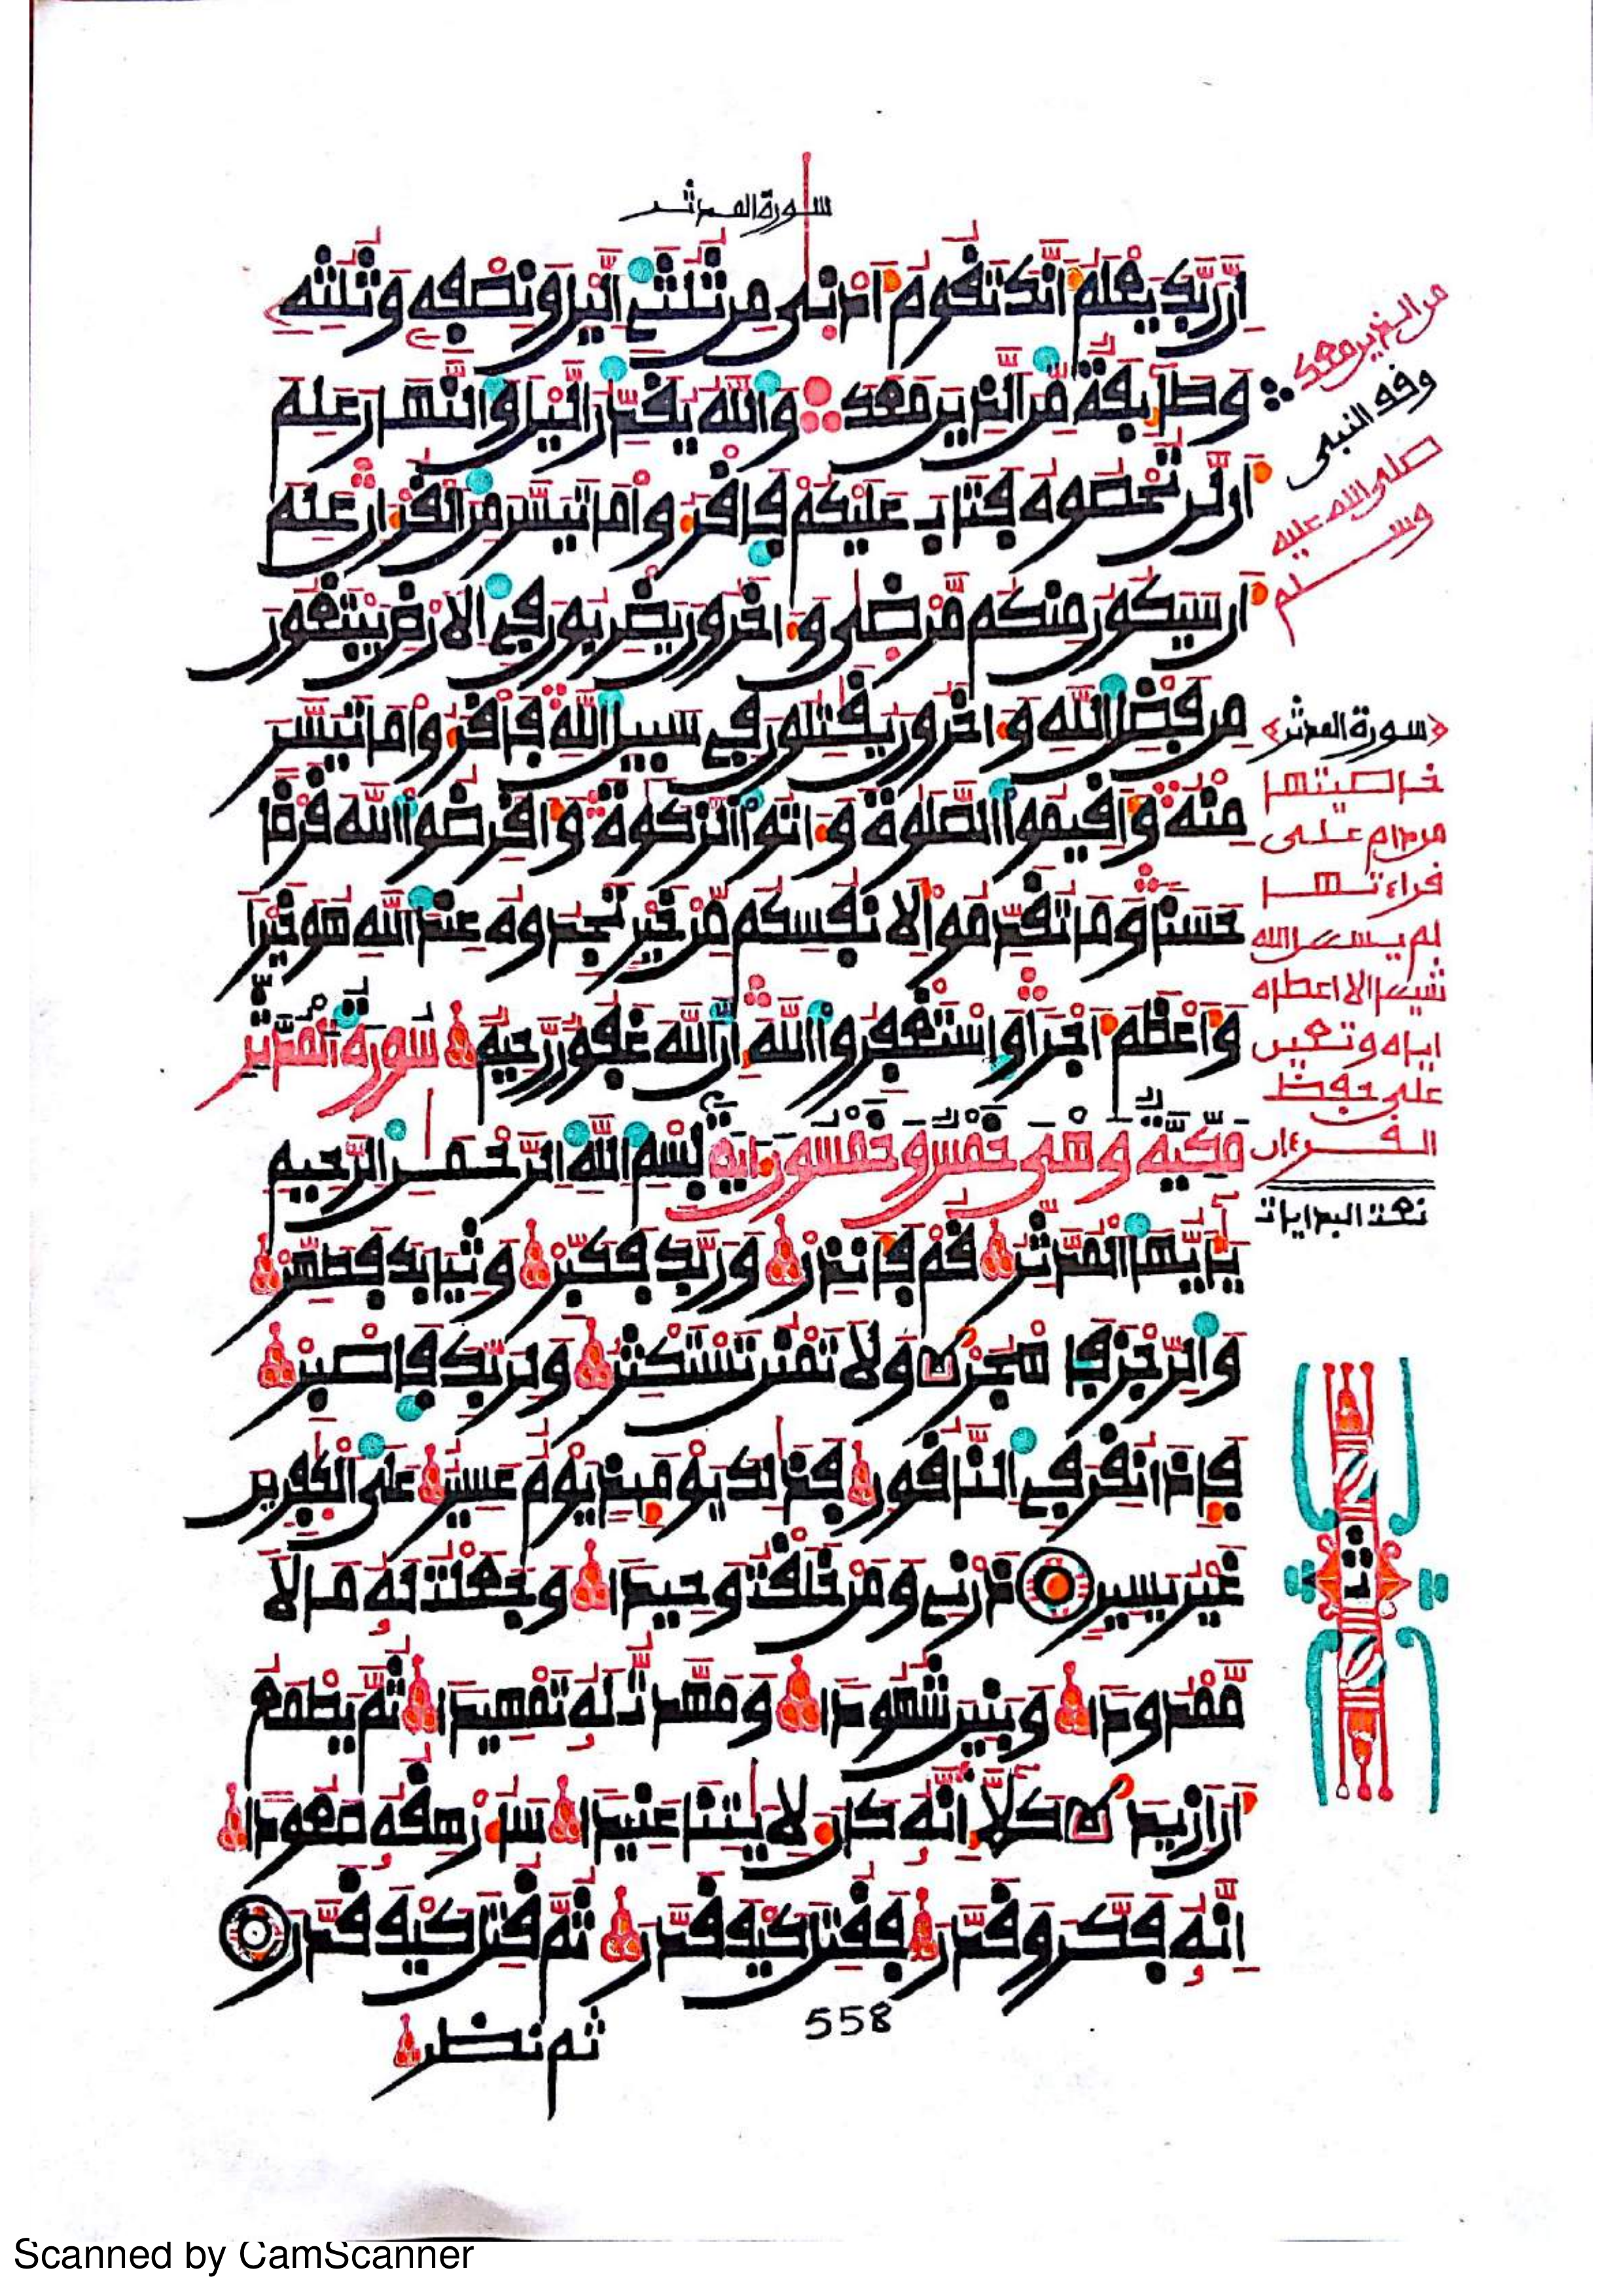 سورة المدثر
اِنَّ رَبَّكَ يَعْلَمُ أَنَّكَ تَقُومُ أَدْنىٰ مِن ثُلُثَيِ اليْلِ وَنِصْفِهِ وَثُلُثِهِ
وَطَآئِفَةٌ مِّنَ الذِينَ مَعَكَ وَاللَّهُ يُقَدِّرُ اليْلَ وَالنَّهَارَ عَلِمَ
أَن لَّن تُحْصُوهُ فَتَابَ عَلَيْكُمْ فَاقْرَءُوا مَا تَيَسَّرَ مِنَ الْقُرْءَانِ عَلِمَ
أَن سَيَكُونُ مِنكُم مَّرْضىٰ وَءَاخَرُونَ يَضْرِبُونَ فِي الَارْضِ يَبْتَغُونَ
مِن فَضْلِ اللَّهِ وَءَاخَرُونَ يُقَٰتِلُونَ فِي سَبِيلِ اللَّهِ فَاقْرَءُوا مَا تَيَسَّرَ
مِنْهُ وَأَقِيمُوا الصَّلَوٰةَ وَءَاتُوا الزَّكَوٰةَ وَأَقْرِضُوا اللَّهَ قَرْضًا
حَسَنًا وَمَا تُقَدِّمُوا لِأَنفُسِكُم مِّنْ خَيْرٍ تَجِدُوهُ عِندَ اللَّهِ هُوَ خَيْرًا
وَأَعْظَمَ أَجْرًا وَاسْتَغْفِرُوا اللَّهَ اِنَّ اللَّهَ غَفُورٌ رَّحِيمٌ سُورَةُ الْمُدَّثِّرِ
مَكِّيَّةٌ وَهْىَ خَمْسٌ وَخَمْسُونَ ءَايَةً بِسْمِ اللَّهِ الرَّحْمَٰنِ الرَّحِيمِ
يَٰأَيُّهَا الْمُدَّثِّرُ قُمْ فَأَنذِرْ وَرَبَّكَ فَكَبِّرْ وَثِيَابَكَ فَطَهِّرْ
وَالرِّجْزَ فَاهْجُرْ وَلَا تَمْنُن تَسْتَكْثِرُ وَلِرَبِّكَ فَاصْبِرْ
فَإِذَا نُقِرَ فِي النَّاقُورِ فَذَٰلِكَ يَوْمَئِذٍ يَوْمٌ عَسِيرٌ عَلَى الْكَٰفِرِينَ
غَيْرُ يَسِيرٍ ذَرْنِي وَمَنْ خَلَقْتُ وَحِيدًا وَجَعَلْتُ لَهُ مَالًا
مَّمْدُودًا وَبَنِينَ شُهُودًا وَمَهَّدتُّ لَهُ تَمْهِيدًا ثُمَّ يَطْمَعُ
أَنَ ازِيدَ كَلَّا إِنَّهُ كَانَ لِأَيَٰتِنَا عَنِيدًا سَأُرْهِقُهُ صَعُودًا
اِنَّهُ فَكَّرَ وَقَدَّرَ فَقُتِلَ كَيْفَ قَدَّرَ ثُمَّ قُتِلَ كَيْفَ قَدَّرَ
ثم نظر
558
من الذين معك
وقف النبى
صلى الله عليه
وسلم
سورة المدثر
خاصيتها
من دام على
قراءتها
لم يسئل الله
شيئا الا اعطاه
اياه وتعين
على حفظ
القرءان
نعت البدايات
Scanned by CamScanner